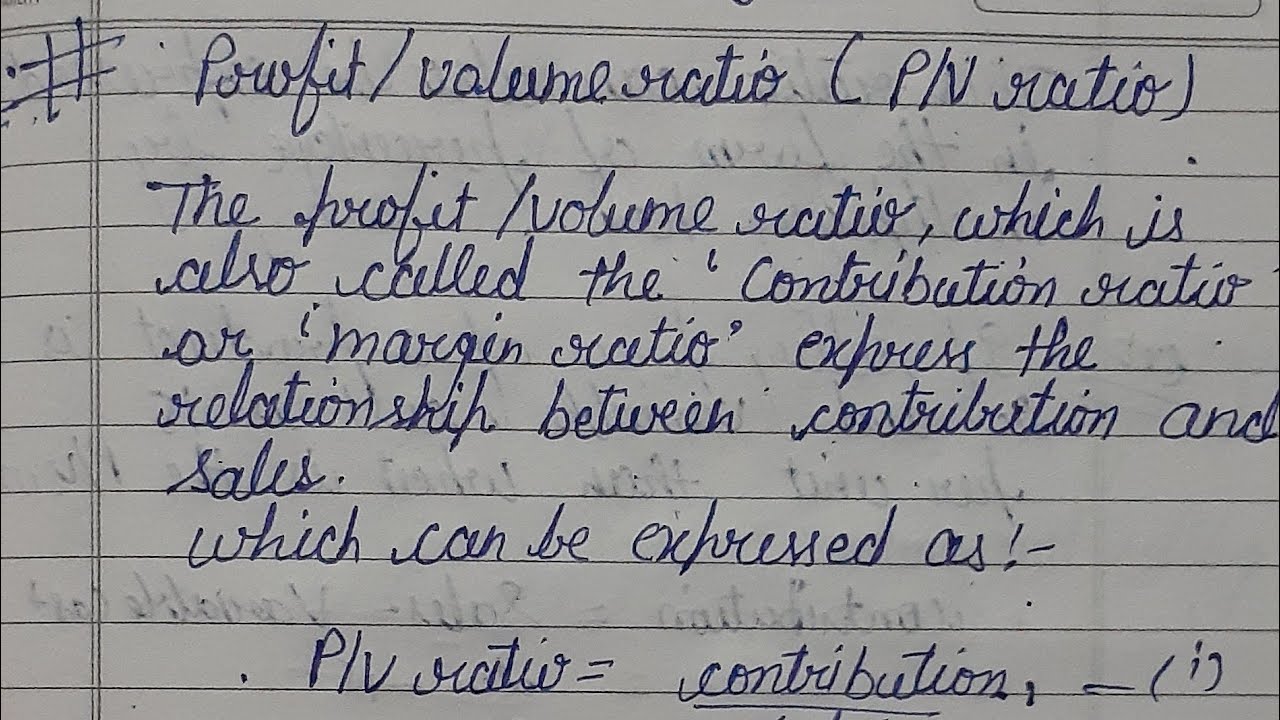 # Powfit/volume ratio (P/V ratio)
The profit/volume ratio, which is
also called the 'Contribution ratio'
or 'margin ratio' express the
relationship between contribution and
sales.
which can be expressed as:-
P/V ratio = contribution, - (i)